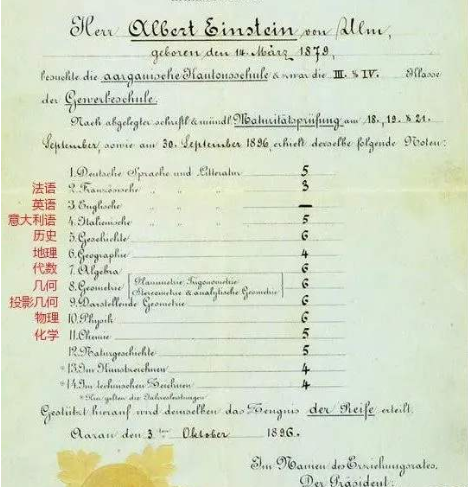 Herr Albert Einstein von Ulm,
geboren den 14. März 1879,
besuchte die aargauische Kantonsschule & zwar die III. & IV. Klasse
der Gewerbeschule.
Nach abgelegter schriftl. & mündl. Maturitätsprüfung am 18., 19. & 21.
September, sowie am 30. September 1896, erhielt derselbe folgende Noten:
1. Deutsche Sprache und Litteratur 5
法语 2. Französische " " " 3
英语 3. Englische " " " —
意大利语 4. Italienische " " " 5
历史 5. Geschichte 6
地理 6. Geographie 4
代数 7. Algebra 6
几何 8. Geometrie (Planimetrie, Trigonometrie Stereometrie & analytische Geometrie) 6
投影几何 9. Darstellende Geometrie 6
物理 10. Physik 6
化学 11. Chemie 5
12. Naturgeschichte 5
*13. Im Kunstzeichnen 4
*14. Im technischen Zeichnen 4
*Hier gelten die Jahresleistungen.
Gestützt hierauf wird demselben das Zeugnis der Reife erteilt.
Aarau den 3ten Oktober 1896.
Im Namen des Erziehungsrates,
Der Präsident: